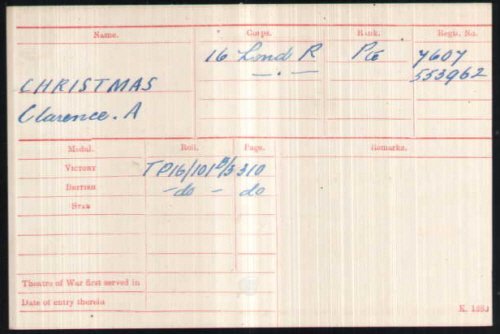 Name. Corps. Rank. Regtl. No.
16 Lond R Pte 7607
— . — 553962
CHRISTMAS
Clarence. A
Medal. Roll. Page. Remarks.
VICTORY TP16/101B/3 310
BRITISH -do- do
STAR
Theatre of War first served in
Date of entry therein
K. 1380